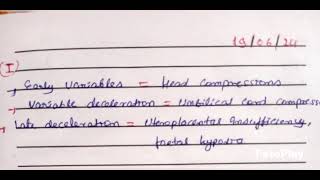 19/06/24
(I)
→ Early variables = Head compressions
→ Variable deceleration = Umbilical cord compress
→ Late deceleration = Uteroplacental insufficiency,
foetal hypoxia